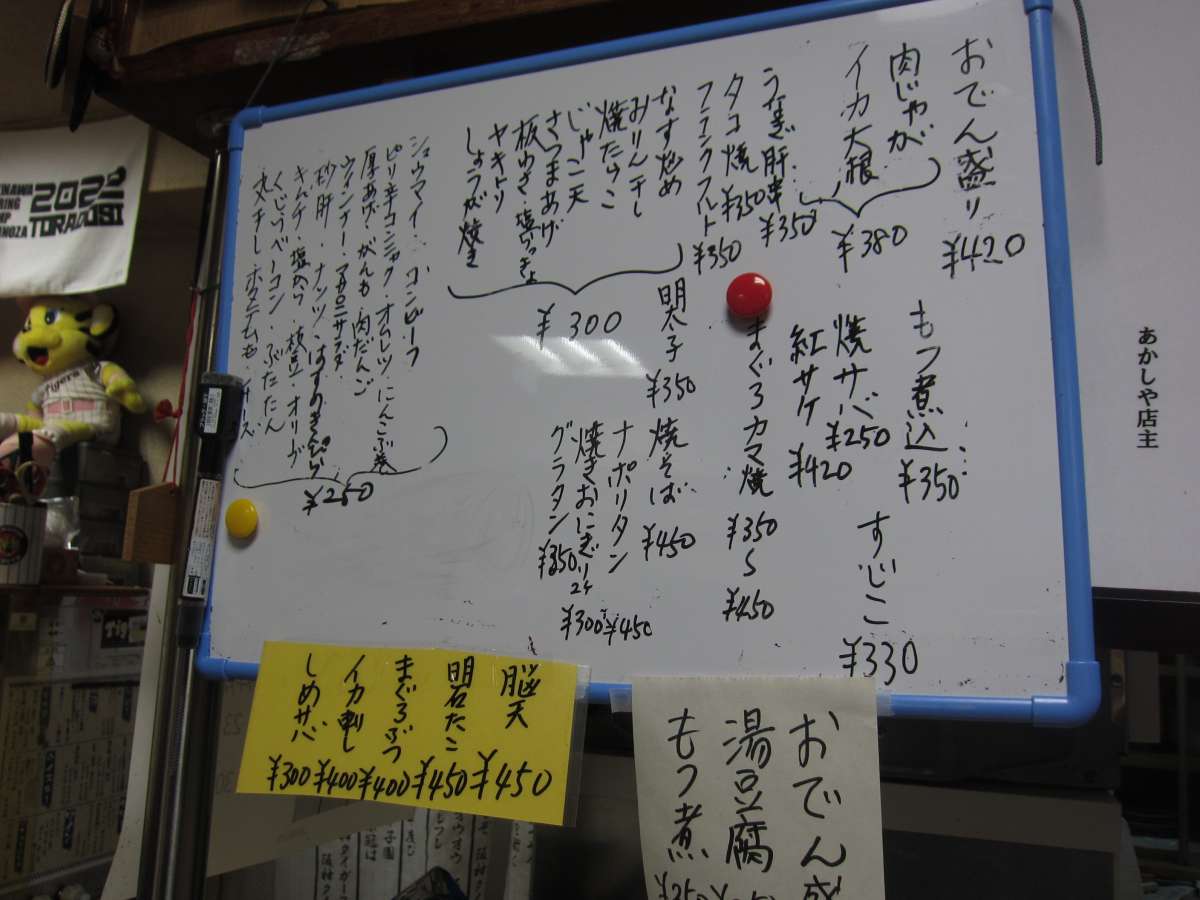 おでん盛り ¥420
肉じゃが
イカ大根
¥380
うなぎ肝串 ¥350
タコ焼 ¥350
フランクフルト ¥350
なす炒め
みりん干し
焼たらこ
じゃこ天
さつまあげ
板わさ・塩らっきょ
ヤキトリ
しょうが焼き
¥300
シュウマイ・コンビーフ
ピリ辛コンニャク・オムレツ・にんこぶ巻
厚あげ・がんも・肉だんご
ウィンナー・マカロニサラダ・
砂肝・ナッツ・はすのきんぴら
キムチ・塩から・枝豆・オリーブ
くじらベーコン・ぶたたん
丸干し ホタテムキ チーズ
¥250
もつ煮込 ¥350
焼サバ ¥250
紅サケ ¥420
まぐろカマ焼 ¥350〜¥450
明太子 ¥350
すじこ ¥330
焼そば ¥450
ナポリタン ¥450
焼きおにぎり2ケ ¥300
グラタン ¥350
脳天 ¥450
明石たこ ¥450
まぐろぶつ ¥400
イカ刺し ¥400
しめサバ ¥300
おでん盛
湯豆腐
もつ煮 ¥250
あかしや店主
2023
TORADUSI
Tigers